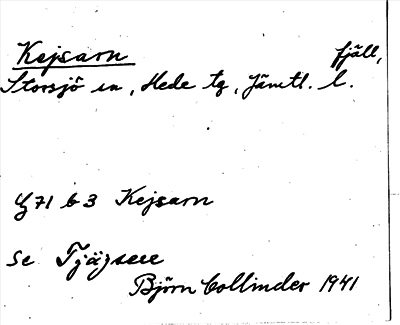 Kejsarn fjäll,
Storsjö sn, Hede tg, Jämtl. l.
71 b 3 Kejsarn
se Tjäjsere
Björn Collinder 1941